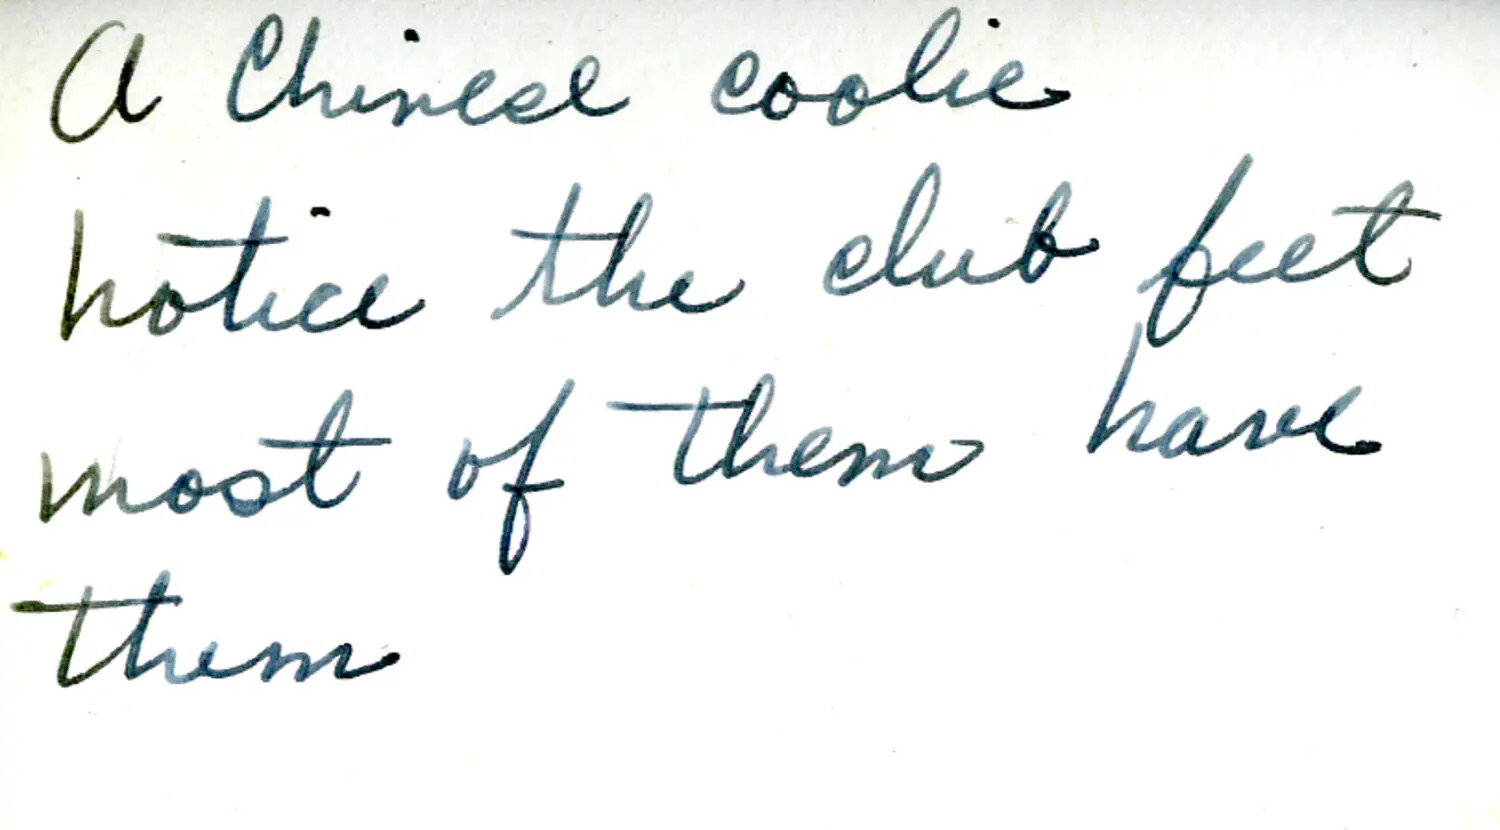 A Chinese coolie
notice the club feet
most of them have
them